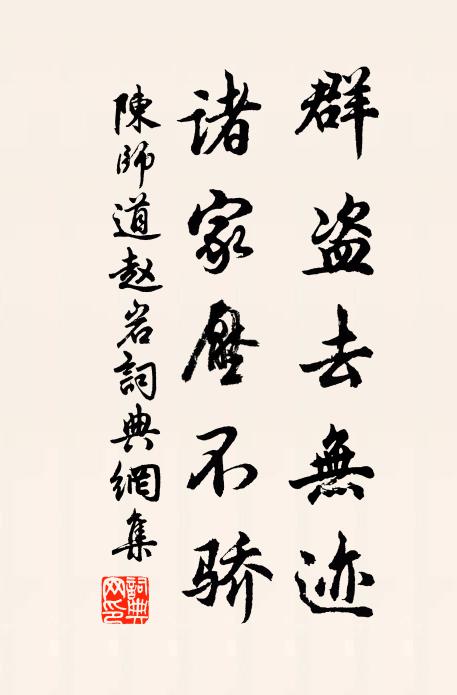 群盗去無迹
諸家壓不骄
陳師道赵岩詞典網集
詞典网印